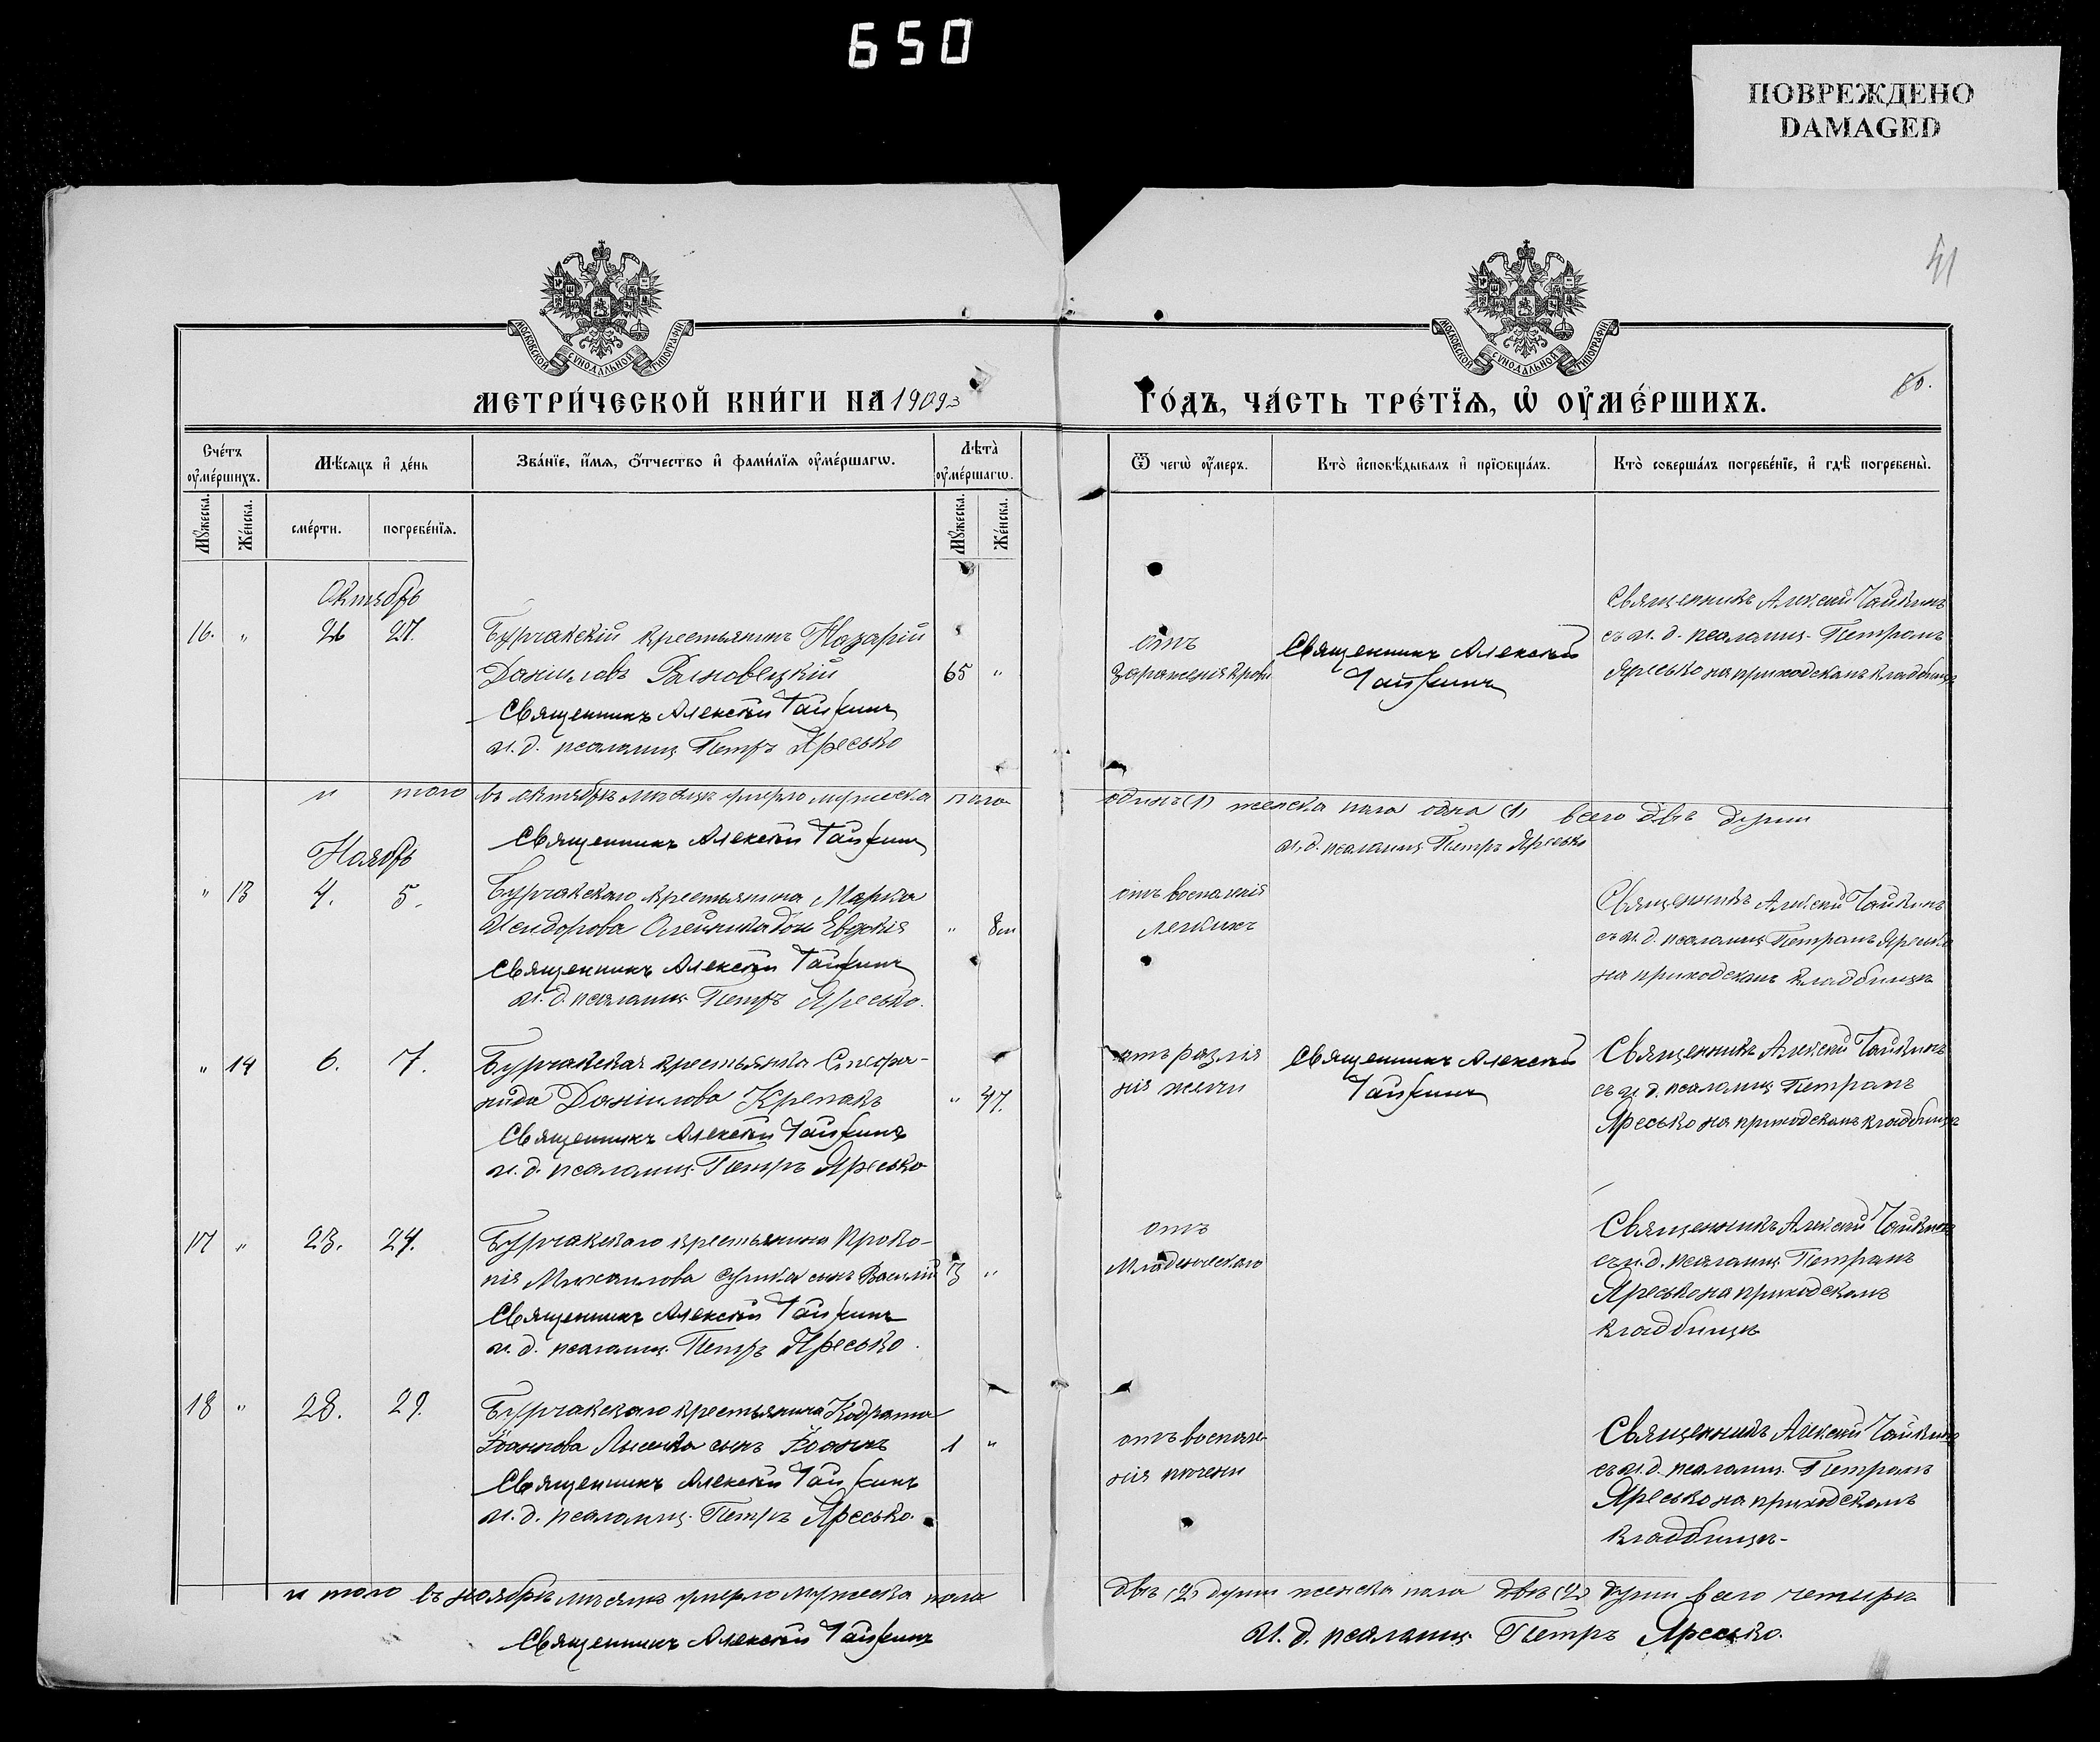 650
ПОВРЕЖДЕНО
DAMAGED
41
МОСКОВСКОЙ СѴНОДАЛЬНОЙ ТИПОГРАФІИ
МОСКОВСКОЙ СѴНОДАЛЬНОЙ ТИПОГРАФІИ
МЕТРИ́ЧЕСКОЙ КНИ́ГИ НА 1909
ГО́ДЪ, ЧА́СТЬ ТРЕ́ТЇѦ, Ѡ҆ ОУ҆МЕ́РШИХЪ.
60.
Сче́тъ оу҆ме́ршихъ.
Мѣ́сѧцъ и҆ де́нь
Зва́нїе, и҆́мѧ, ѻ҆́тчество и҆ фами́лїѧ оу҆ме́ршагѡ.
Лѣ́та оу҆ме́ршагѡ.
Ѿ чегѡ̀ оу҆́меръ.
Кто̀ и҆сповѣ́дывалъ и҆ прїѡбща́лъ.
Кто̀ соверша́лъ погребе́нїе, и҆ гдѣ̀ погребены̀.
Мꙋ́жеска.
Же́нска.
сме́рти.
погребе́нїѧ.
Мꙋ́жеска.
Же́нска.
Октябрь
16. " 26 27. Бурчакскій крестьянинъ Назарій
Даніиловъ 65 "
Священникъ Алексѣй Чайкинъ
и. д. псаломщ. Петръ Яресько
отъ
зараженія крови
Священникъ Алексѣй
Чайкинъ
Священникъ Алексѣй Чайкинъ
съ и. д. псаломщ. Петромъ
Яресько на приходскомъ кладбищѣ
и того въ октябрѣ мѣсяцѣ умерло мужеска пола
одинъ (1) женска пола одна (1) всего двѣ души
Священникъ Алексѣй Чайкинъ
и. д. псаломщ. Петръ Яресько
Ноябрь
" 13 4. 5. Бурчакскаго крестьянина Марка
Исидорова дочь Евдокія " 8м
Священникъ Алексѣй Чайкинъ
и. д. псаломщ. Петръ Яресько.
отъ воспаленія
легкихъ
Священникъ Алексѣй Чайкинъ
съ и. д. псаломщ. Петромъ Яресько
на приходскомъ кладбищѣ
" 14 6. 7. Бурчакская крестьянка Стефа-
нида Даніилова Крепакъ " 47.
Священникъ Алексѣй Чайкинъ
и. д. псаломщ. Петръ Яресько
отъ разлія
нія желчи
Священникъ Алексѣй
Чайкинъ
Священникъ Алексѣй Чайкинъ
съ и. д. псаломщ. Петромъ
Яресько на приходскомъ кладбищѣ
17 " 23. 24. Бурчакскаго крестьянина Проко-
пія Михаилова сынъ Василій 3 "
Священникъ Алексѣй Чайкинъ
и. д. псаломщ. Петръ Яресько.
отъ
младенческаго
Священникъ Алексѣй Чайкинъ
съ и. д. псаломщ. Петромъ
Яресько на приходскомъ
кладбищѣ
18 " 28. 29. Бурчакскаго крестьянина Кодрата
Іоаннова Лысенка сынъ Іоаннъ 1 "
Священникъ Алексѣй Чайкинъ
и. д. псаломщ. Петръ Яресько.
отъ воспале-
нія печени
Священникъ Алексѣй Чайкинъ
съ и. д. псаломщ. Петромъ
Яресько на приходскомъ
кладбищѣ-
и того въ ноябрѣ мѣсяцѣ умерло мужеска пола
двѣ (2) души женска пола двѣ (2) души всего четыри
Священникъ Алексѣй Чайкинъ
и. д. псаломщ. Петръ Яресько.